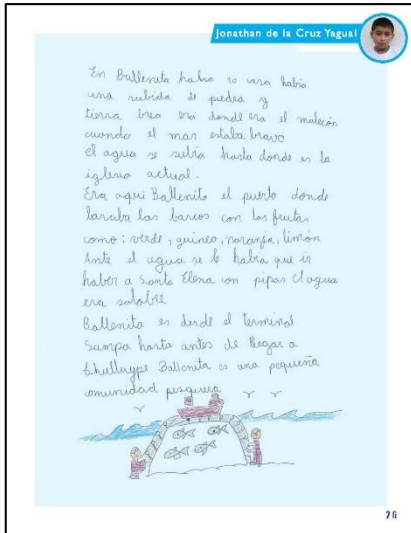 Jonathan de la Cruz Yagual
En Ballenita habia 10 casa habia
una subida de piedra y
tierra brea era donde era el malecón
cuando el mar estaba bravo
el agua se subia hasta donde es la
iglesia actual.
Era aqui Ballenita el puerto donde
las barcos con las frutas
como: verde, guineo, naranja, limón
Ante el agua se le habia que ir
haber a Santa Elena con pipas el agua
era salobre
Ballenita es desde el terminal
Sumpa hasta antes de llegar a
Ballenita es una pequeña
comunidad pesquera